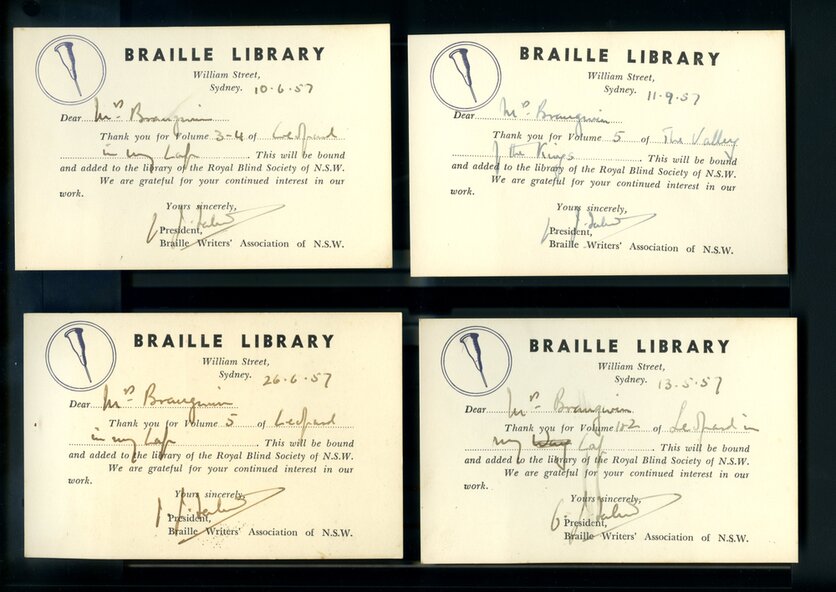 BRAILLE LIBRARY
William Street,
Sydney. 10.6.57
Dear Mrs
Thank you for Volume 3-4 of Leopard
in my Lap. This will be bound
and added to the library of the Royal Blind Society of N.S.W.
We are grateful for your continued interest in our
work.
Yours sincerely,
President,
Braille Writers' Association of N.S.W.
BRAILLE LIBRARY
William Street,
Sydney. 11.9.57
Dear Mrs
Thank you for Volume 5 of The Valley
of the Kings. This will be bound
and added to the library of the Royal Blind Society of N.S.W.
We are grateful for your continued interest in our
work.
Yours sincerely,
President,
Braille Writers' Association of N.S.W.
BRAILLE LIBRARY
William Street,
Sydney. 26.6.57
Dear Mrs
Thank you for Volume 5 of Leopard
in my Lap. This will be bound
and added to the library of the Royal Blind Society of N.S.W.
We are grateful for your continued interest in our
work.
Yours sincerely,
President,
Braille Writers' Association of N.S.W.
BRAILLE LIBRARY
William Street,
Sydney. 13.5.57
Dear Mrs
Thank you for Volume of Leopard in
my Lap. This will be bound
and added to the library of the Royal Blind Society of N.S.W.
We are grateful for your continued interest in our
work.
Yours sincerely,
President,
Braille Writers' Association of N.S.W.